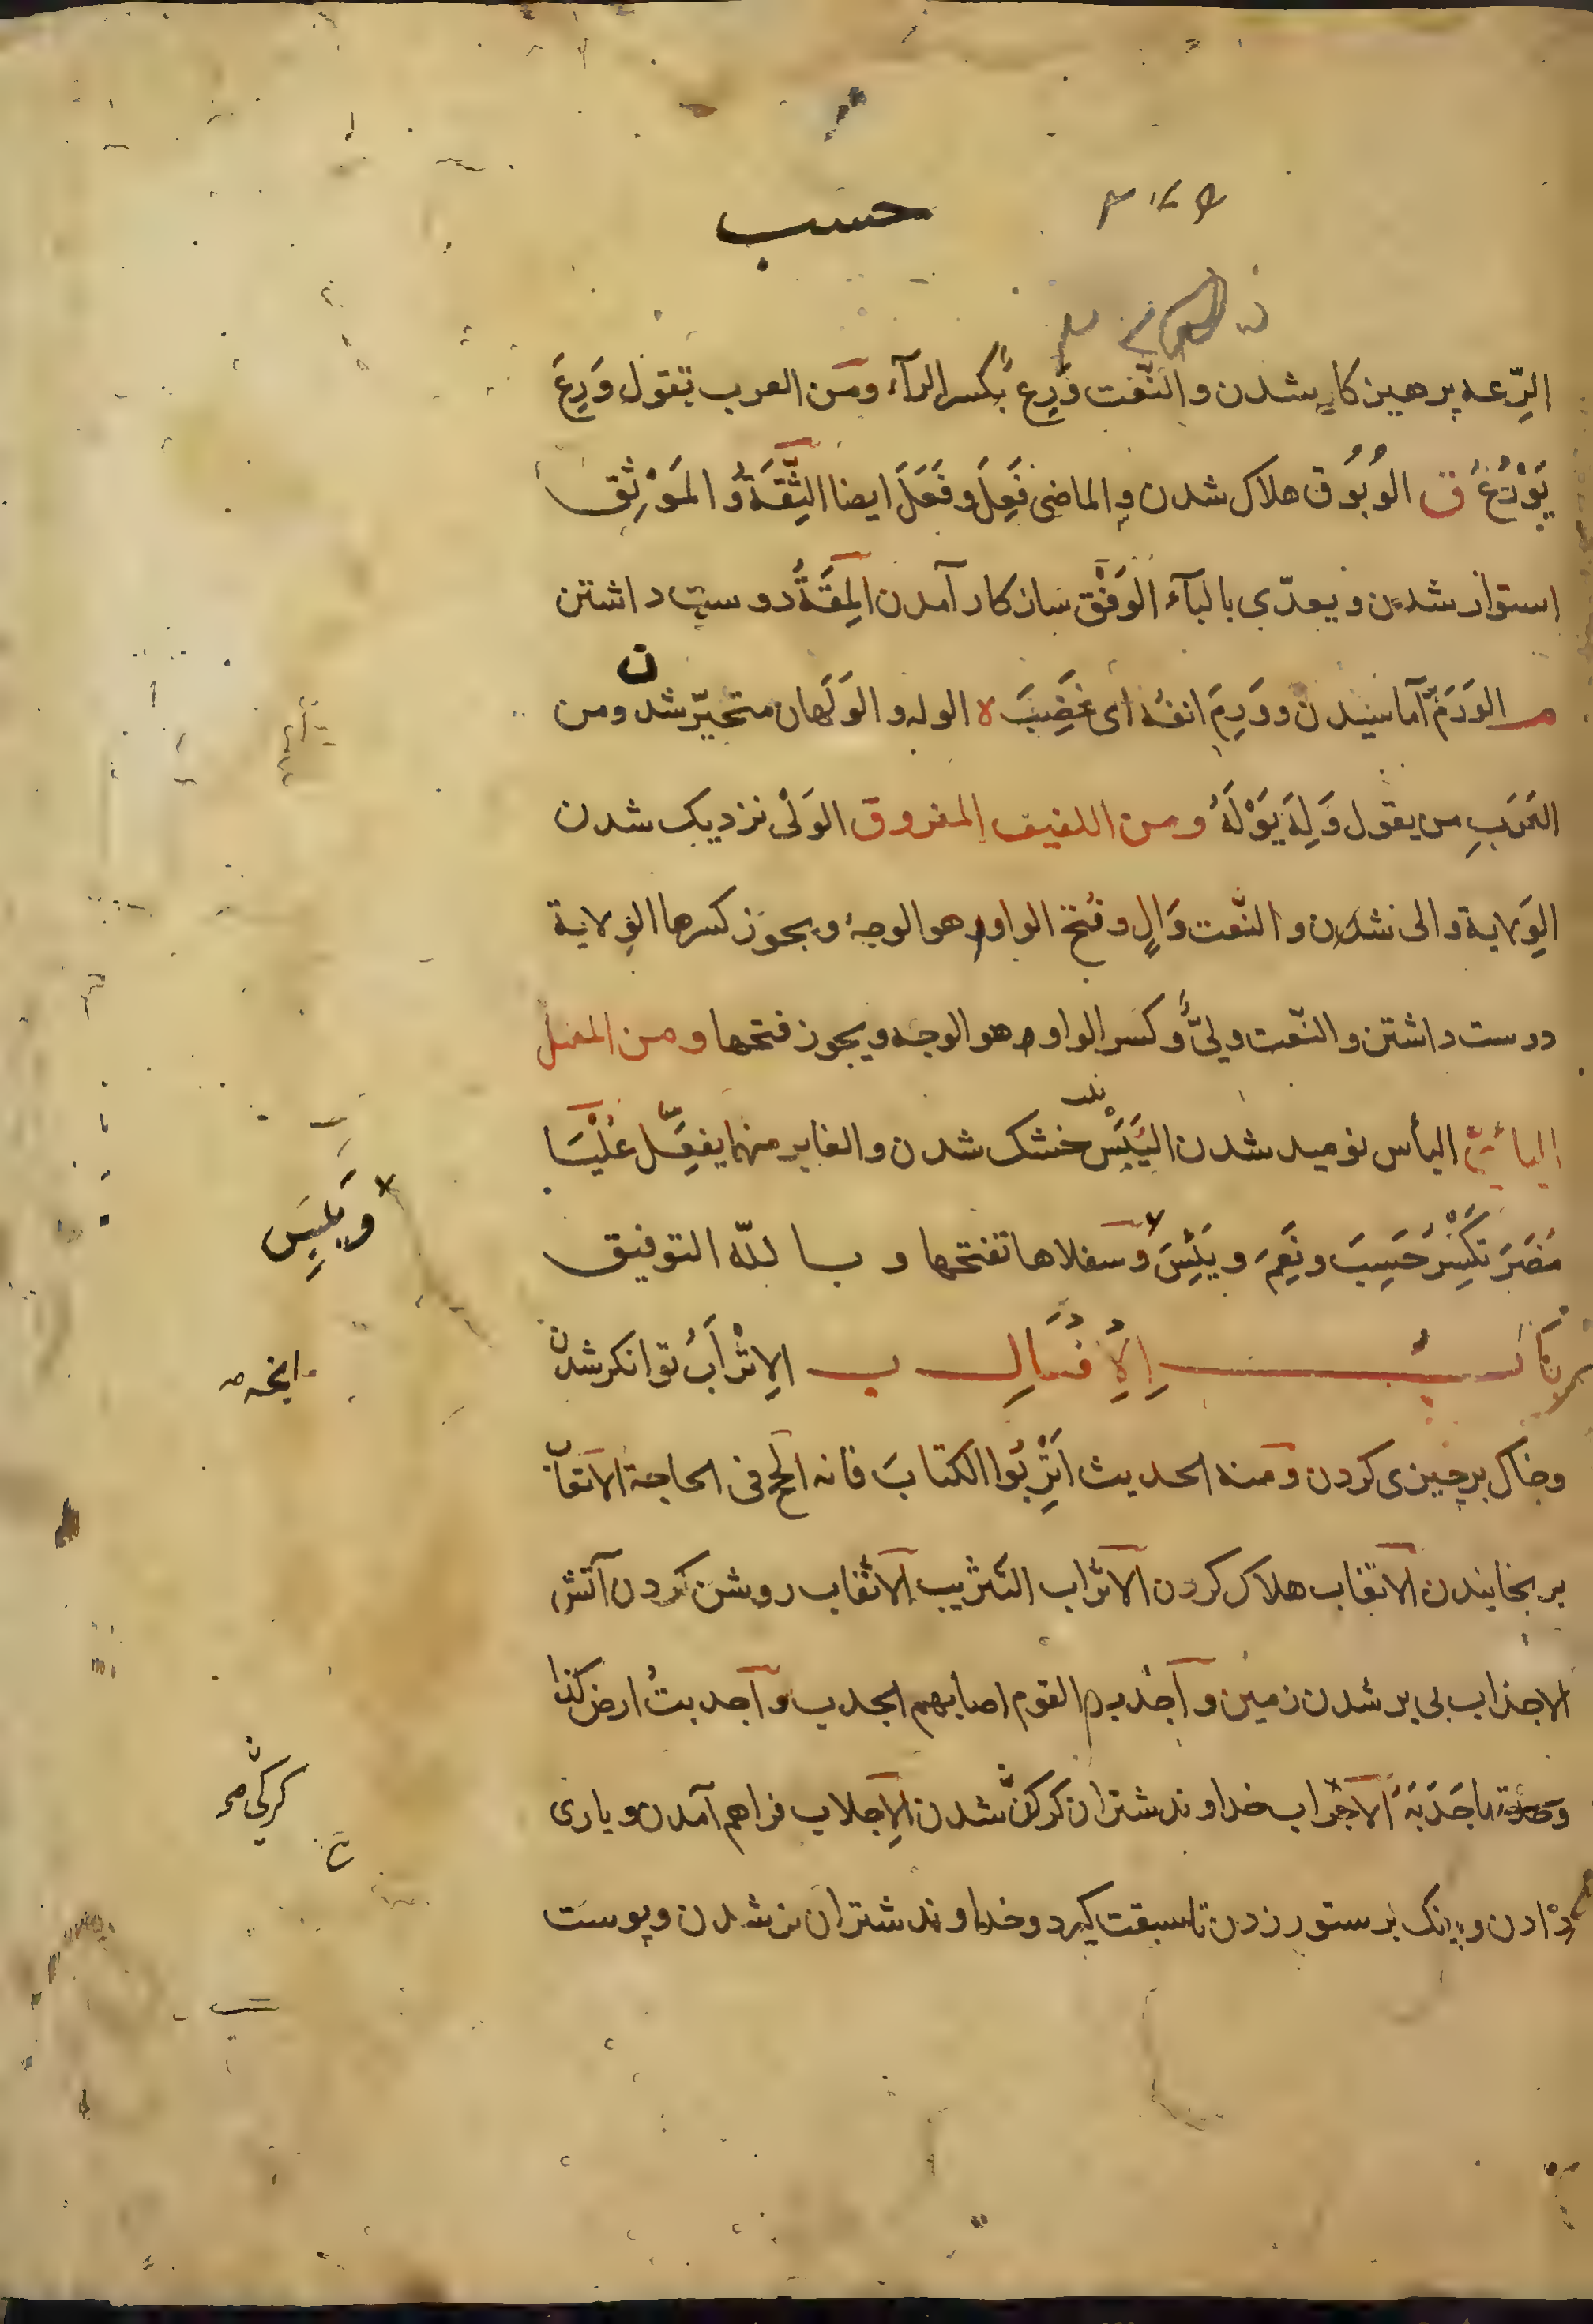 حسب
الرِّعه پرهیز کار شدن والنّعت وَرِعٌ بکسر الرآء ومن العرب تقول وَرِعَ
يَوْرَعُ ق الوُبُوق هلاک شدن والماضی فَعِلَ وفَعَلَ ايضا الثِّقَةُ والمَوْثِق
استوار شدن ويعدّی بالبآء الوَفْق ساز کار آمدن المِقَةُ دوست داشتن
م الوَرَمُ آماسیدن ووَرِمَ انفه ای غَضِبَ ه الوله والوَلَهان متحیّر شدن ومن
العَرَبِ من يقول وَلِهَ يَوْلَهُ ومن اللفيف المفروق الوَلْی نزدیک شدن
الوَلاية والی شدن والنّعت وَالٍ وفتح الواو هو الوجهُ ويجوز کسرها الوِلاية
دوست داشتن والنّعت ولیٌّ وکسر الواو هو الوجه ويجوز فتحها ومن المعتل
اليائیّ اليأس نوميد شدن اليَبَس خشک شدن والغابر منهما يفعِل عُلْيَا
مُضَرَ تَكْسِرُ حَسِبَ ونَعِمَ ويَئِسَ وسفلاها تفتحها وبالله التوفيق
وَيَبِسَ
بَابُ الاِفْعَالِ ب الاِتْرَابُ توانکر شدن
وخاک بر چیزی کردن ومنه الحديث اَتْرِبُوا الکتابَ فانه انجح فی الحاجة الاتعاب
انجح
برنجانیدن الاتغاب هلاک کردن الاثراب التثریب الاثقاب روشن کردن آتش
الاجداب بی بر شدن زمین وأجدب القوم اصابهم الجدب وأجدبتُ ارض کذا
وجدتها جَدْبَةً الاجراب خداوند شتران کرکن شدن الاجلاب فراهم آمدن ویاری
کرکین
دادن وبانک بر ستور زدن تا سبقت کیرد وخداوند شتران نر شدن وپوست